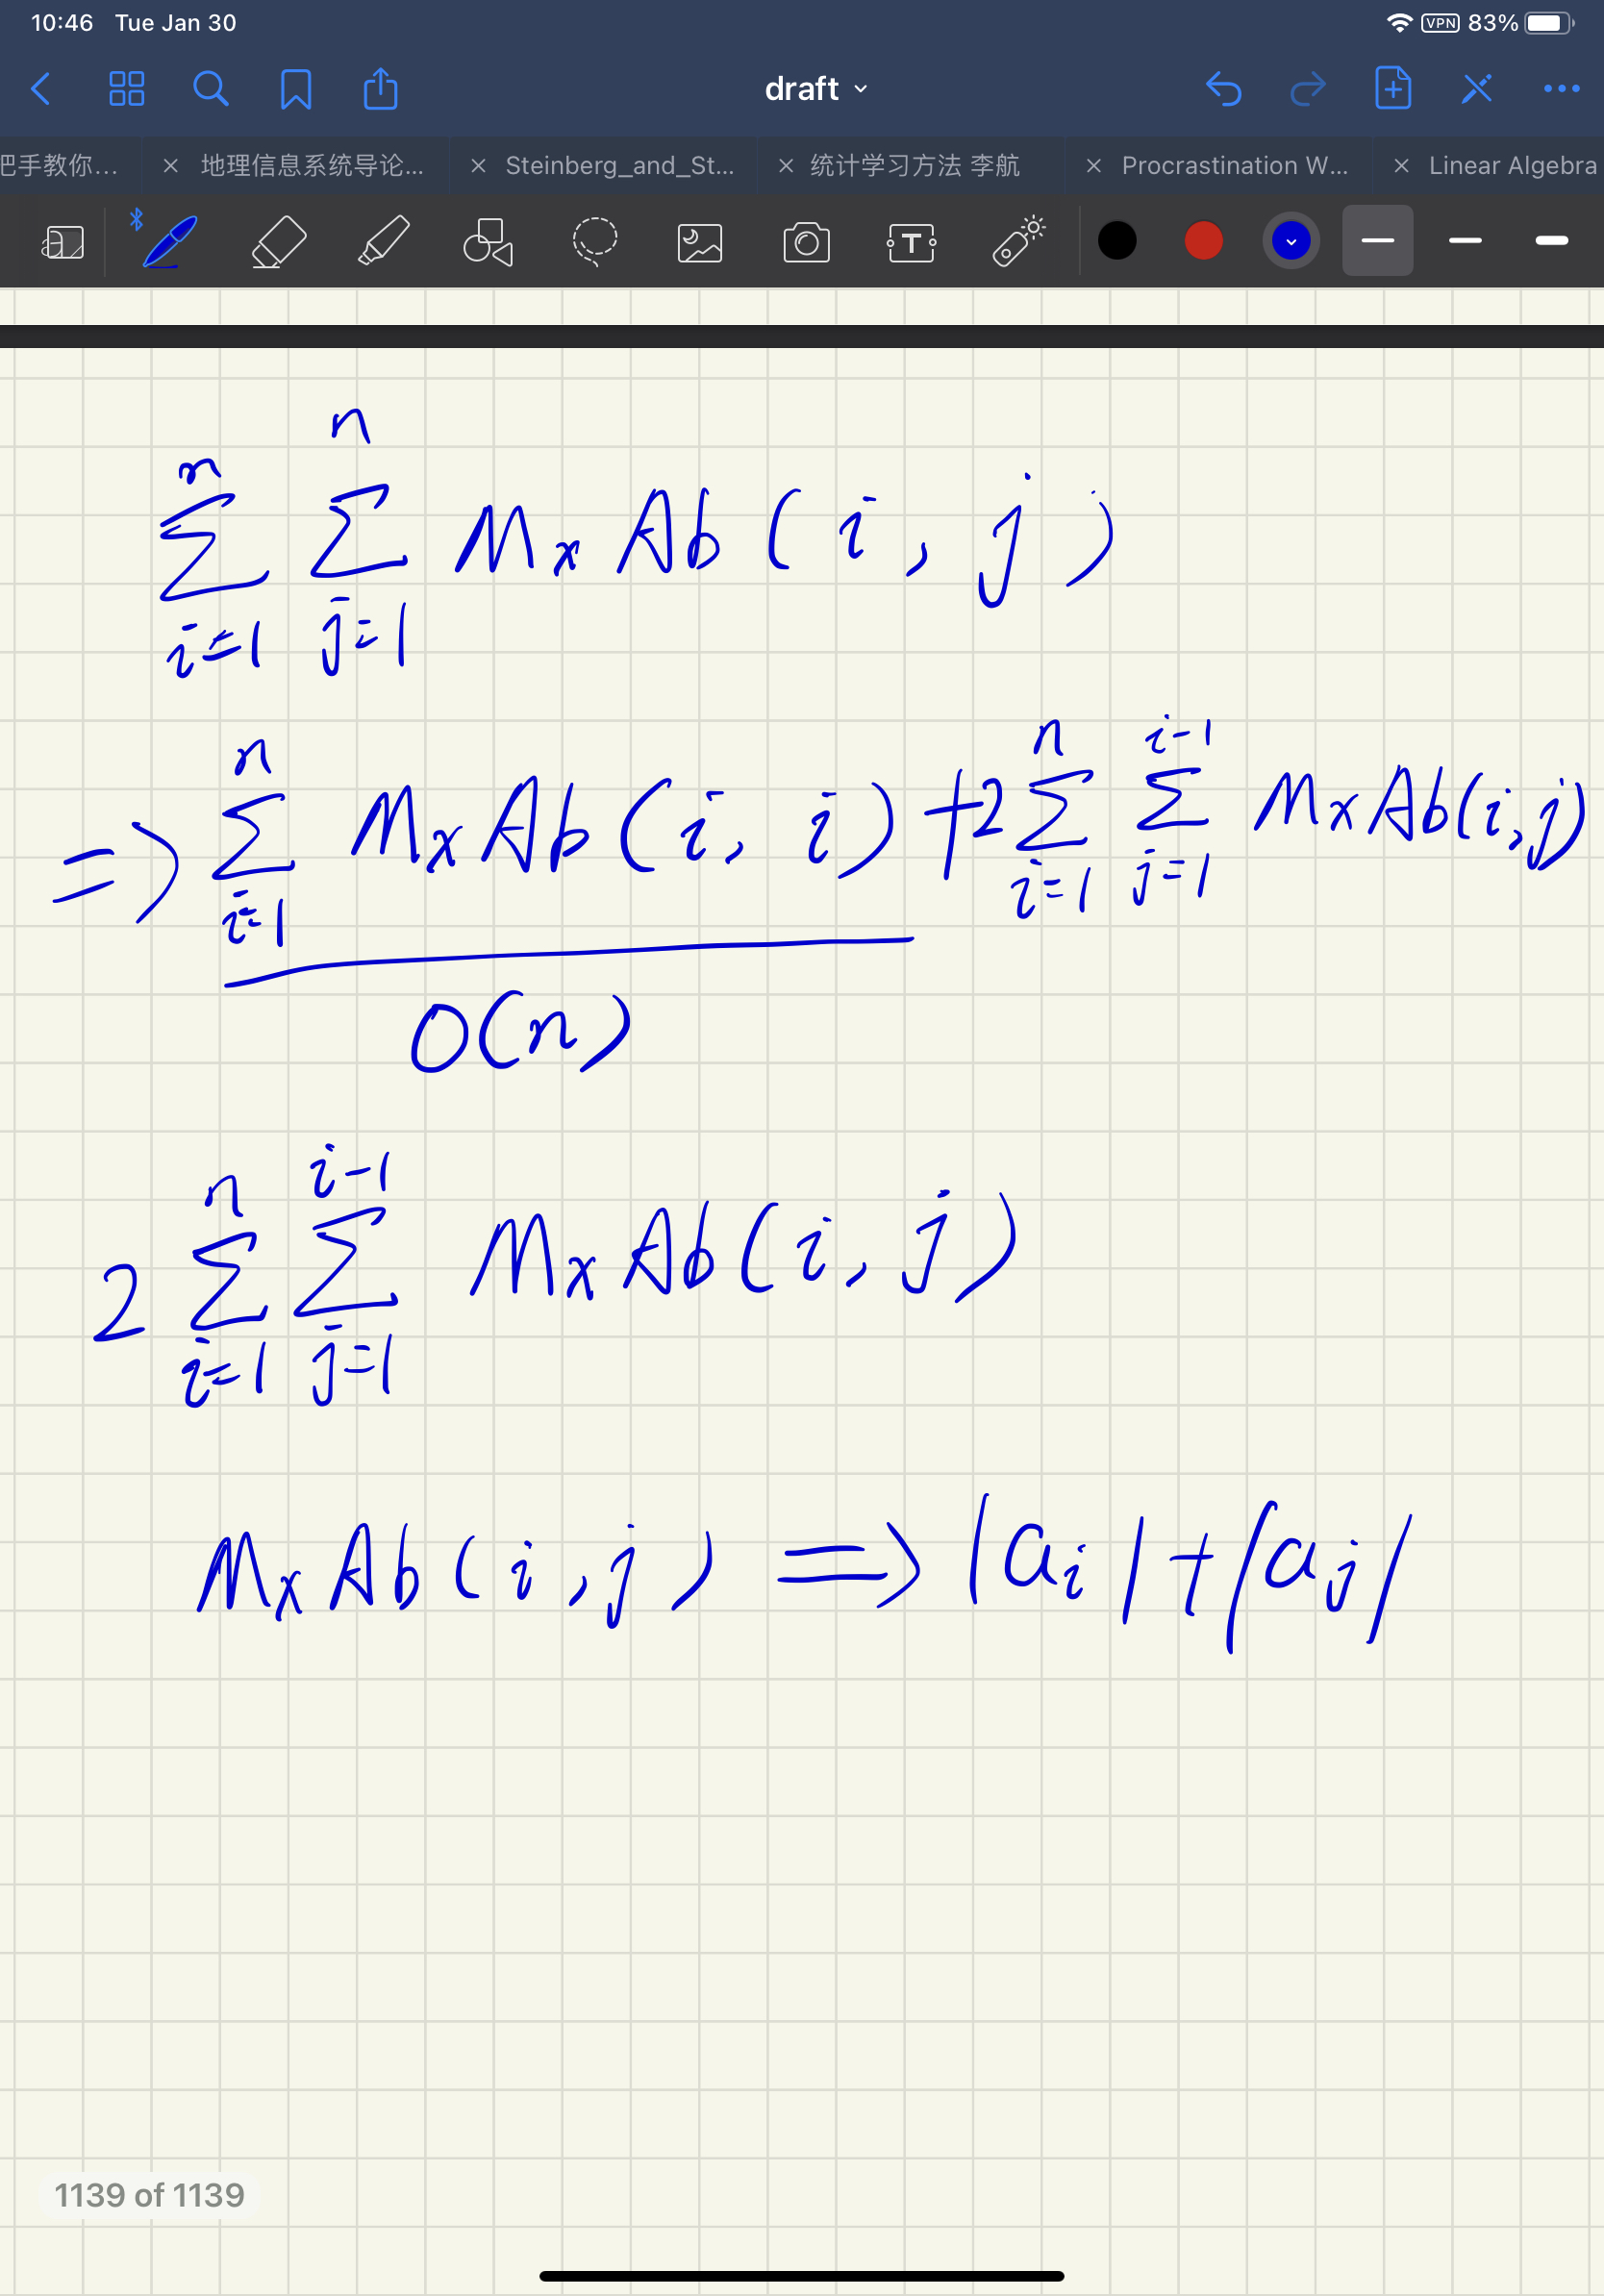 10:46 Tue Jan 30 VPN 83%
draft
把手教你... × 地理信息系统导论... × Steinberg_and_St... × 统计学习方法 李航 × Procrastination W... × Linear Algebra
T
n n
∑ ∑ MxAb(i, j)
i=1 j=1
n n i-1
=> ∑ MxAb(i, i) + 2 ∑ ∑ MxAb(i, j)
i=1 i=1 j=1
O(n)
n i-1
2 ∑ ∑ MxAb(i, j)
i=1 j=1
MxAb(i, j) => |ai| + |aj|
1139 of 1139